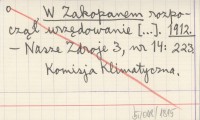 W Zakopanem rozpo-
czął urzędowanie [...]. 1912.
– Nasze Zdroje 3, nr 14: 223
Komisja Klimatyczna.